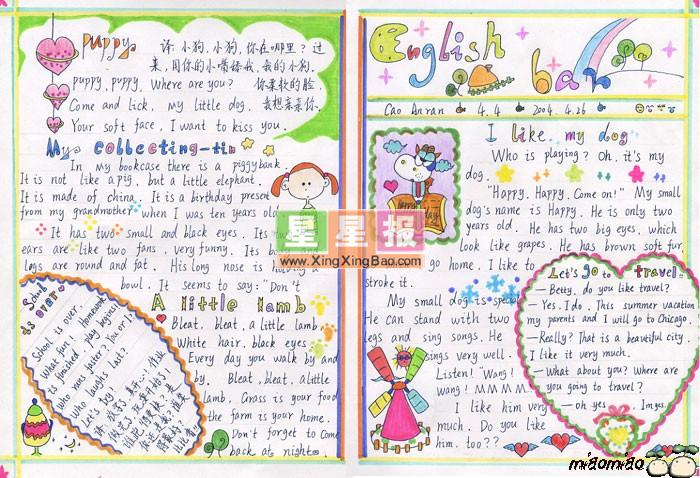 puppy
译: 小狗, 小狗, 你在哪里? 过
来, 用你的小嘴舔我, 我的小狗.
puppy, puppy, Where are you? 你柔软的脸
Come and lick, my little dog. 我想亲亲你.
Your soft face, I want to kiss you.
My collecting-tin
In my bookcase there is a piggybank
It is not like a pig, but a little elephant.
It is made of china. It is a birthday present
from my grandmother when I was ten years old
It has two small and black eyes. Its
ears are like two fans, very funny. Its
legs are round and fat. His long nose is
bowl. It seems to say: "Don't
School
is over
School is over.
what fun! Homework
is finished play begins!
who runs faster? You or I
Who laughs last?
Let's try
A little lamb
Bleat, bleat, a little lamb,
White hair, black eyes
Every day you walk by and
by, Bleat, bleat, a little
lamb, Grass is your food
the farm is your home.
Don't forget to come
back at night.
English
Cao Anran 4.4 2004.4.26
I like my dog
Who is playing? Oh, it's my
dog.
"Happy, Happy, Come on!" My small
dog's name is Happy. He is only two
years old. He has two big eyes, which
look like grapes. He has brown soft fur,
go home. I like to
stroke it.
My small dog is special
He can stand with two
legs and sing songs. He
sings very well.
Listen! "Wang!
Wang! MMMMM!"
I like him very
much. Do you like
him, too??
Let's go to travel.
— Betty, do you like travel?
— Yes. I do. This summer vacation
my parents and I will go to Chicago.
— Really? That is a beautiful city.
I like it very much.
— What about you? Where are
you going to travel?
— oh yes
星星报
www.XingXingBao.com
miaomiao